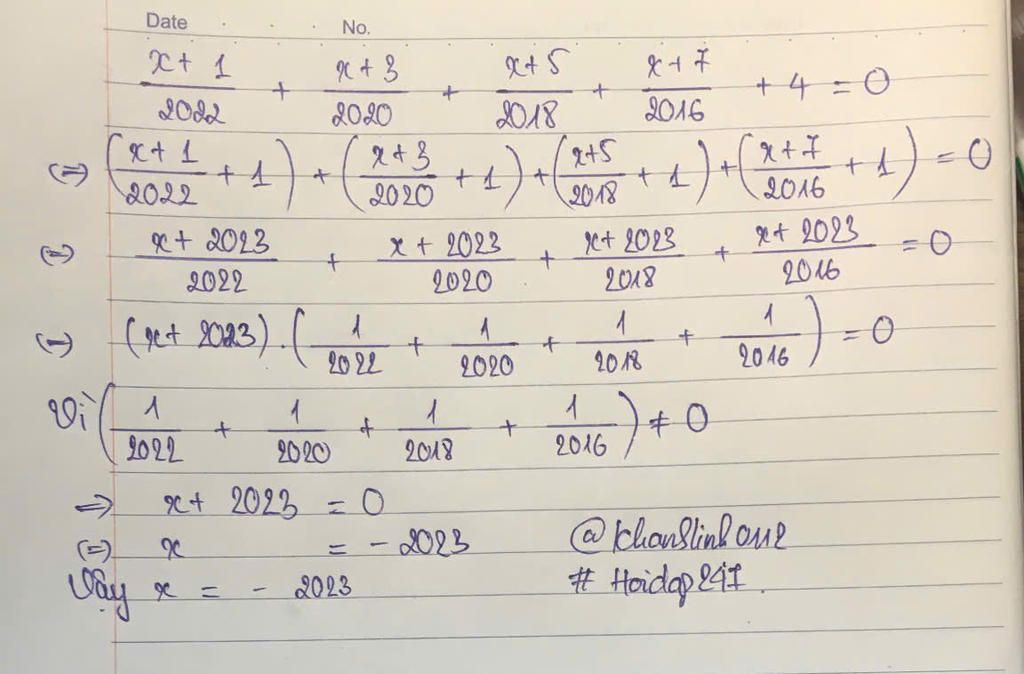 Date No.
x+1/2022 + x+3/2020 + x+5/2018 + x+7/2016 + 4 = 0
(=) (x+1/2022 + 1) + (x+3/2020 + 1) + (x+5/2018 + 1) + (x+7/2016 + 1) = 0
(=) x+2023/2022 + x+2023/2020 + x+2023/2018 + x+2023/2016 = 0
(=) (x+2023).(1/2022 + 1/2020 + 1/2018 + 1/2016) = 0
Vì (1/2022 + 1/2020 + 1/2018 + 1/2016) ≠ 0
=> x+2023 = 0
(=) x = -2023 @khanhlinh0112
Vậy x = - 2023 # Hoidap247.